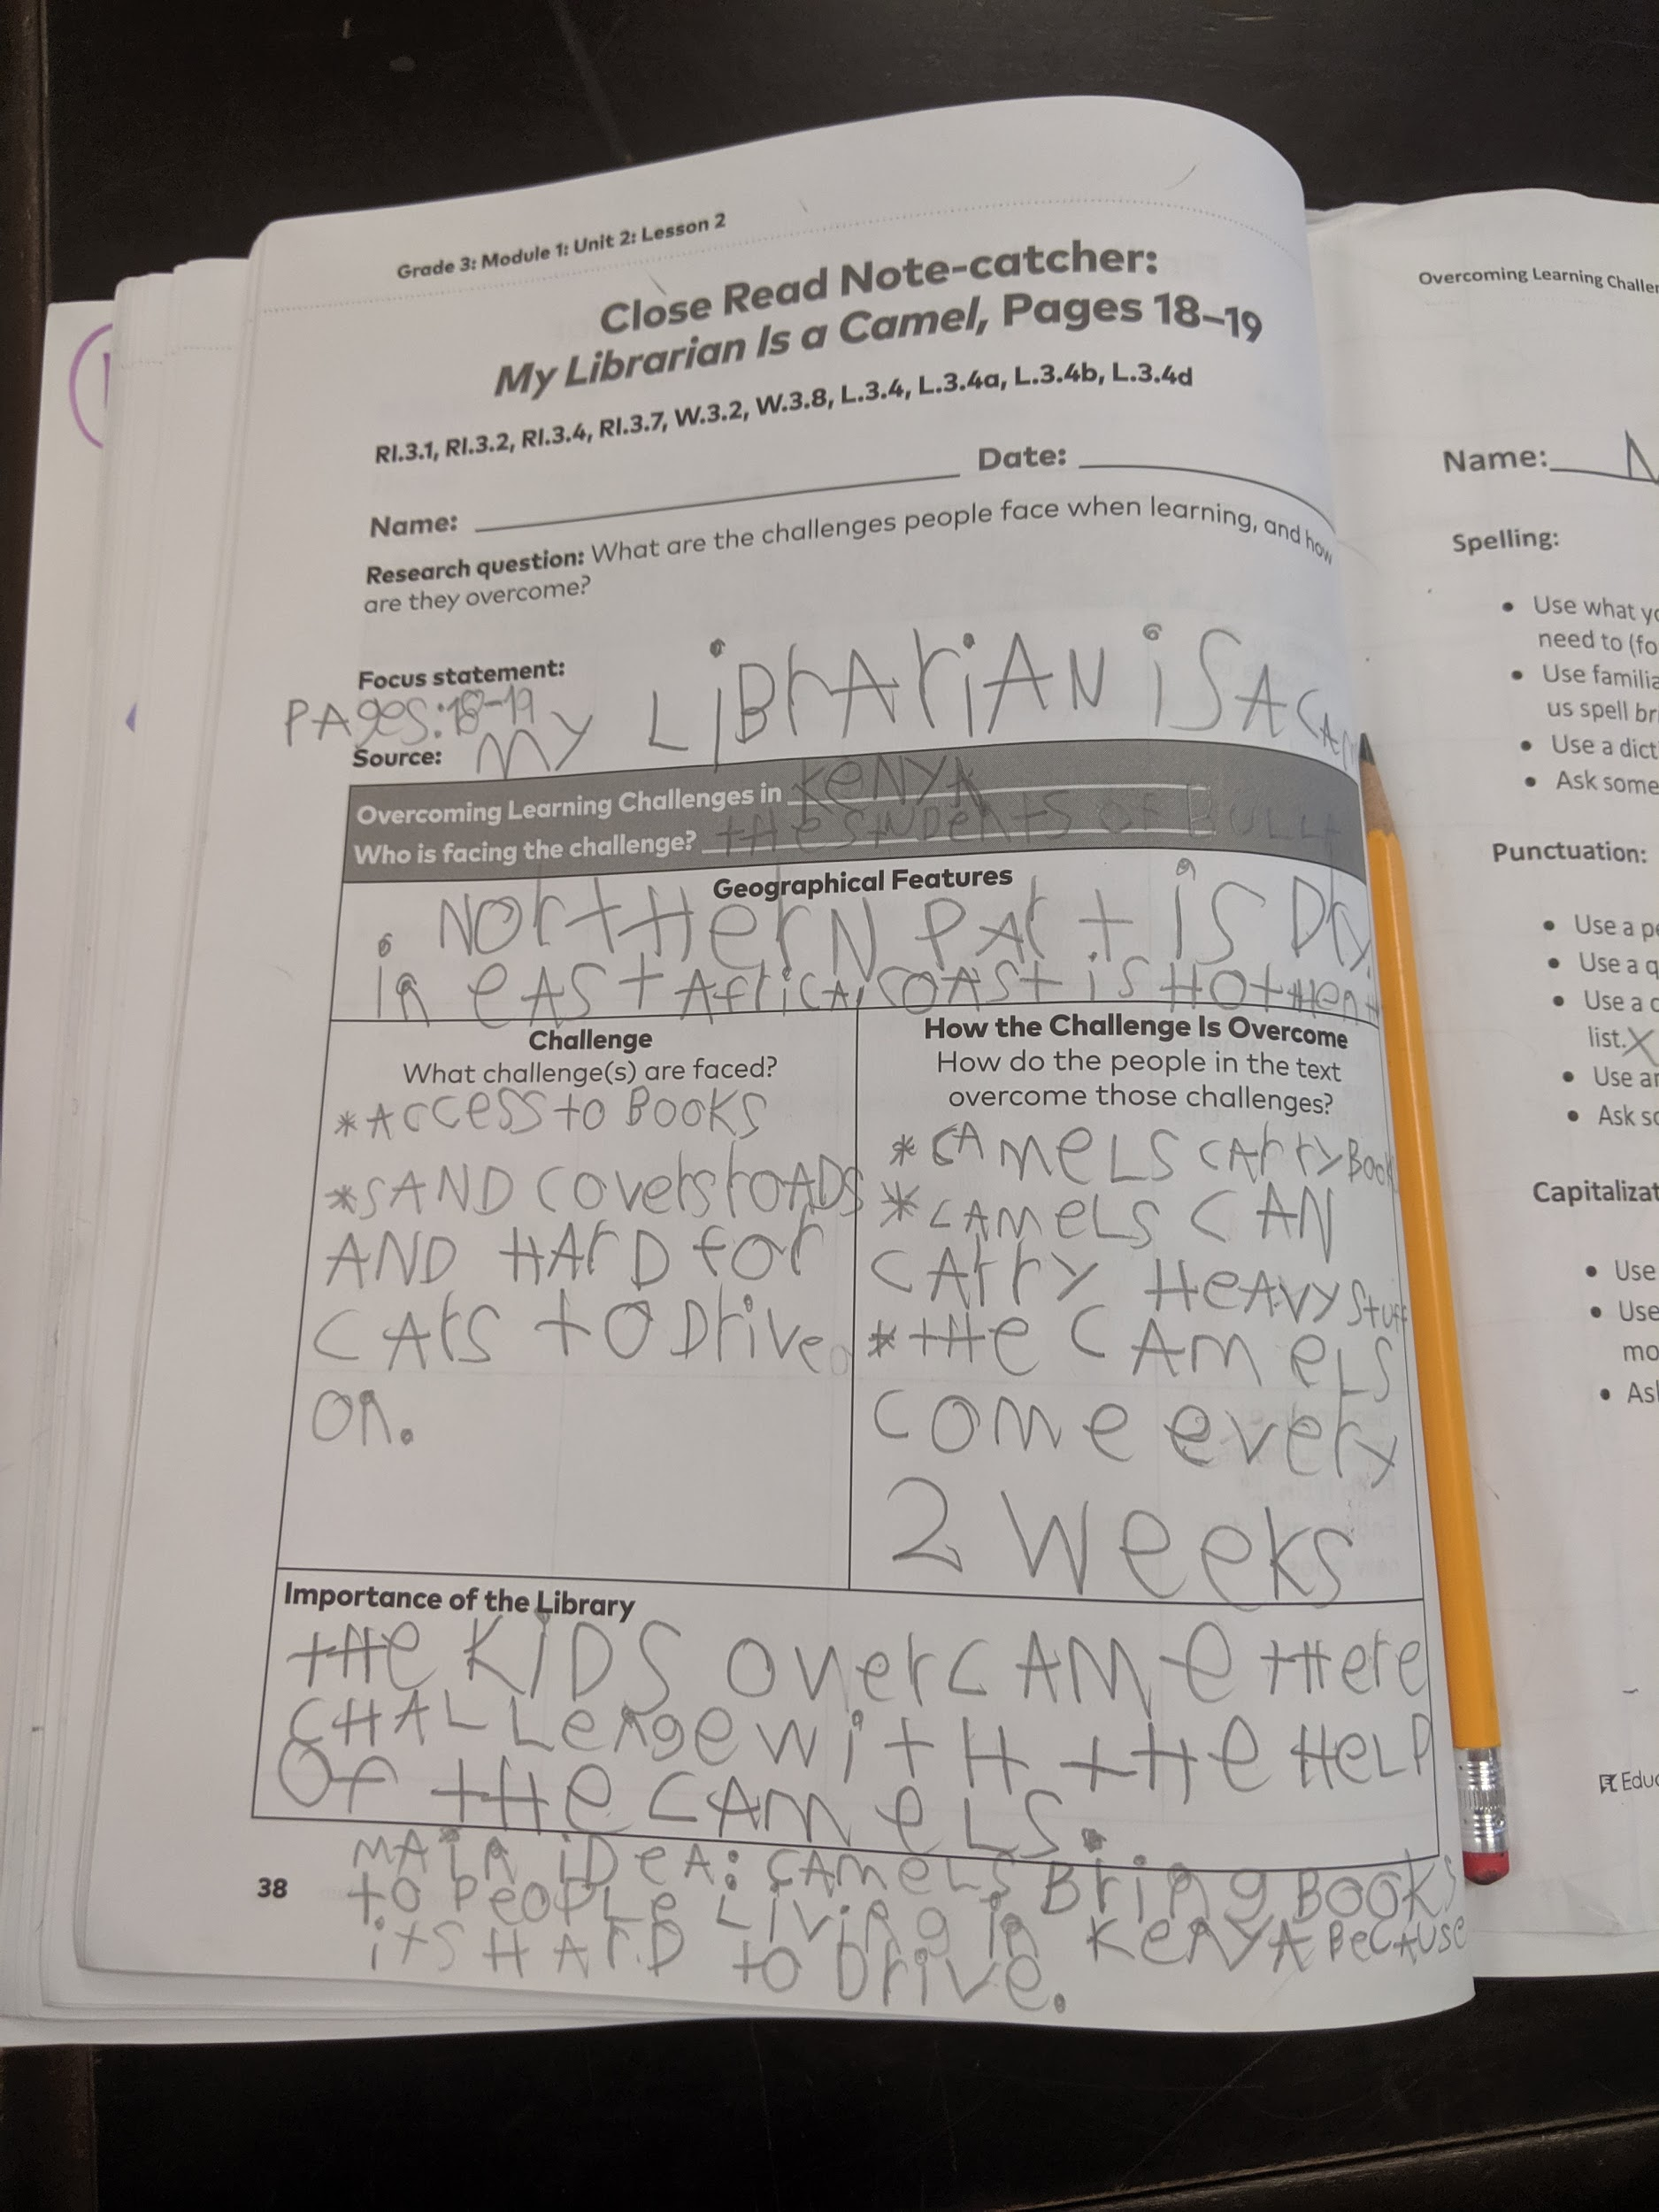 Grade 3: Module 1: Unit 2: Lesson 2
Close Read Note-catcher:
My Librarian Is a Camel, Pages 18–19
RI.3.1, RI.3.2, RI.3.4, RI.3.7, W.3.2, W.3.8, L.3.4, L.3.4a, L.3.4b, L.3.4d
Name: Date:
Research question: What are the challenges people face when learning, and how
are they overcome?
Focus statement:
PAges: 18-19
Source: My LiBrAriAN iS A
Overcoming Learning Challenges in KeNYA
Who is facing the challenge? tHe StuDeNtS OF BULLA
Geographical Features
NOrtHerN PArt iS Dry
in eASt AfricA, COASt iS HOt
Challenge
What challenge(s) are faced?
*Access to BOOKS
*SAND covers roADS
AND HArD for
CArS tO Drive
On.
How the Challenge Is Overcome
How do the people in the text
overcome those challenges?
*CAMeLS CArry Book
*CAMeLS CAN
CArry HeAVY Stuff
*tHe CAMeLS
come every
2 Weeks
Importance of the Library
tHe KiDS OverCAMe tHere
CHALLenge witH tHe HeLP
Of tHe CAMeLS.
38
MAin iDeA: CAMeLS Bring BOOKS
to PeOPLe Living in KenYA BecAuse
itS HArD to Drive.
Overcoming Learning
Name:
Spelling:
• Use what
need to (fo
• Use
us spell
• Use a
• Ask some
Punctuation:
• Use a
• Use a
• Use a
list. X
• Use
• Ask
• Use
• Use